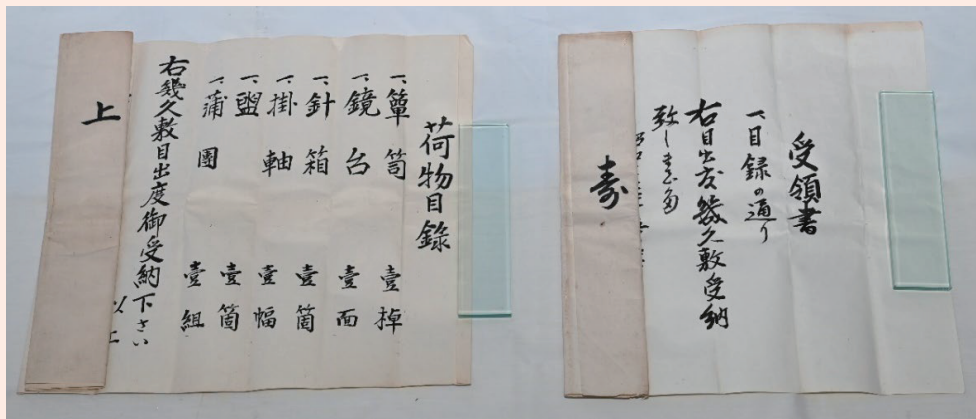 荷物目錄
一、簞笥 壹棹
一、鏡台 壹面
一、針箱 壹箇
一、掛軸 壹幅
一、盥 壹箇
一、蒲團 壹組
右幾久敷目出度御受納下さい
以上
上
受領書
一、目録の通り
右目出度幾久敷受納
致しました
壽